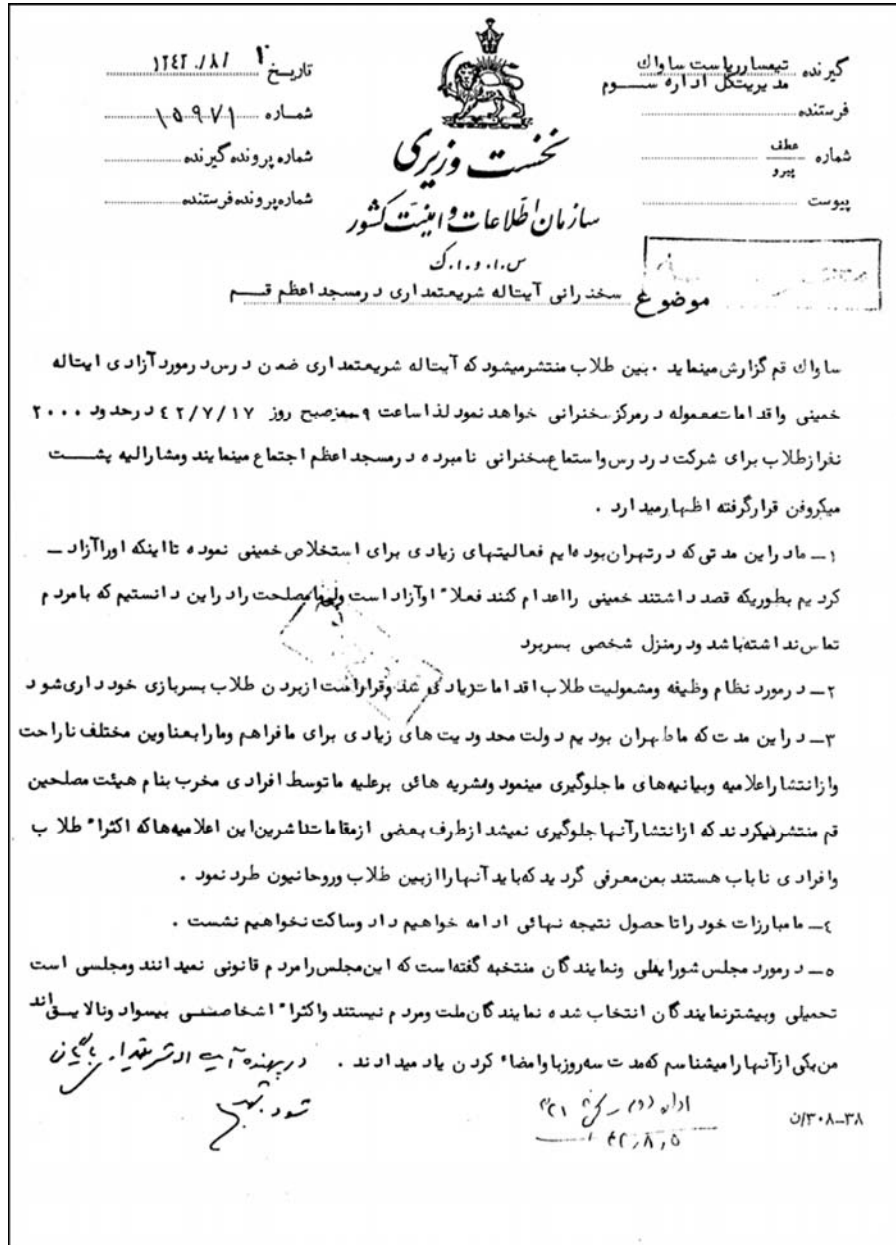 گیرنده تیمسار ریاست ساواك
مدیریتکل اداره ســـوم
فرستنده
شماره عطف
پیرو
پیوست
نخست وزیری
سازمان اطلاعات و امنیت کشور
س.ا.و.ا.ك
تاریخ ۱ /۸/ ۱۳۴۲
شماره ۱۵۹۷۱
شماره پرونده گیرنده
شماره پرونده فرستنده
موضوع سخنرانی آیتاله شریعتمداری درمسجد اعظم قـــم
ساواك قم گزارش مینماید . بین طلاب منتشر میشود که آیتاله شریعتمداری ضمن درس درمورد آزادی ایتاله
خمینی واقدامات معموله درمرکز سخنرانی خواهد نمود لذا ساعت ۹ صبح روز ۴۲/۷/۱۷ درحدود ۲۰۰۰
نفر از طلاب برای شرکت در درس واستماع سخنرانی نامبرده درمسجد اعظم اجتماع مینمایند ومشارالیه پشـــت
میکروفن قرار گرفته اظهار میدارد .
۱ــ مادراین مدتی که درتهران بوده ایم فعالیتهای زیادی برای استخلاص خمینی نموده تا اینکه اورا آزاد ــ
کردیم بطوریکه قصد داشتند خمینی را اعدام کنند فعلاً اوآزاد است مصلحت رادراین دانستیم که بامردم
تماس نداشته باشد ودرمنزل شخصی بسربرد
۲ــ درمورد نظام وظیفه ومشمولیت طلاب اقدامات زیادی شد وقراراست ازبردن طلاب بسربازی خودداری شود
۳ــ دراین مدت که ماطهران بودیم دولت محدودیت های زیادی برای مافراهم ومارابعناوین مختلف ناراحت
وازانتشاراعلامیه وبیانیه های ماجلوگیری مینمود ونشریه هائی برعلیه ماتوسط افرادی مخرب بنام هیئت مصلحین
قم منتشرمیکردند که ازانتشارآنها جلوگیری نمیشد ازطرف بعضی ازمقامات ناشرین این اعلامیه هاکه اکثراً طلاب
وافرادی ناباب هستند بمن معرفی گردید که باید آنهاراازبین طلاب وروحانیون طرد نمود .
۴ــ مامبارزات خود راتا حصول نتیجه نهائی ادامه خواهیم داد وساکت نخواهیم نشست .
۵ــ درمورد مجلس شورایملی ونمایندگان منتخبه گفته است که این مجلس رامردم قانونی نمیدانند ومجلسی است
تحمیلی وبیشترنمایندگان انتخاب شده نمایندگان ملت ومردم نیستند واکثراً اشخاصــی بیسواد ونالایــق اند
من یکی ازآنهارامیشناسم که مدت سه روزباوامضاء کردن یاد میدادند . در پرونده آیت اله شریعتمداری بایگانی
شود
۴۲/۸/۵
۳۸ــ۳۰۸/ن